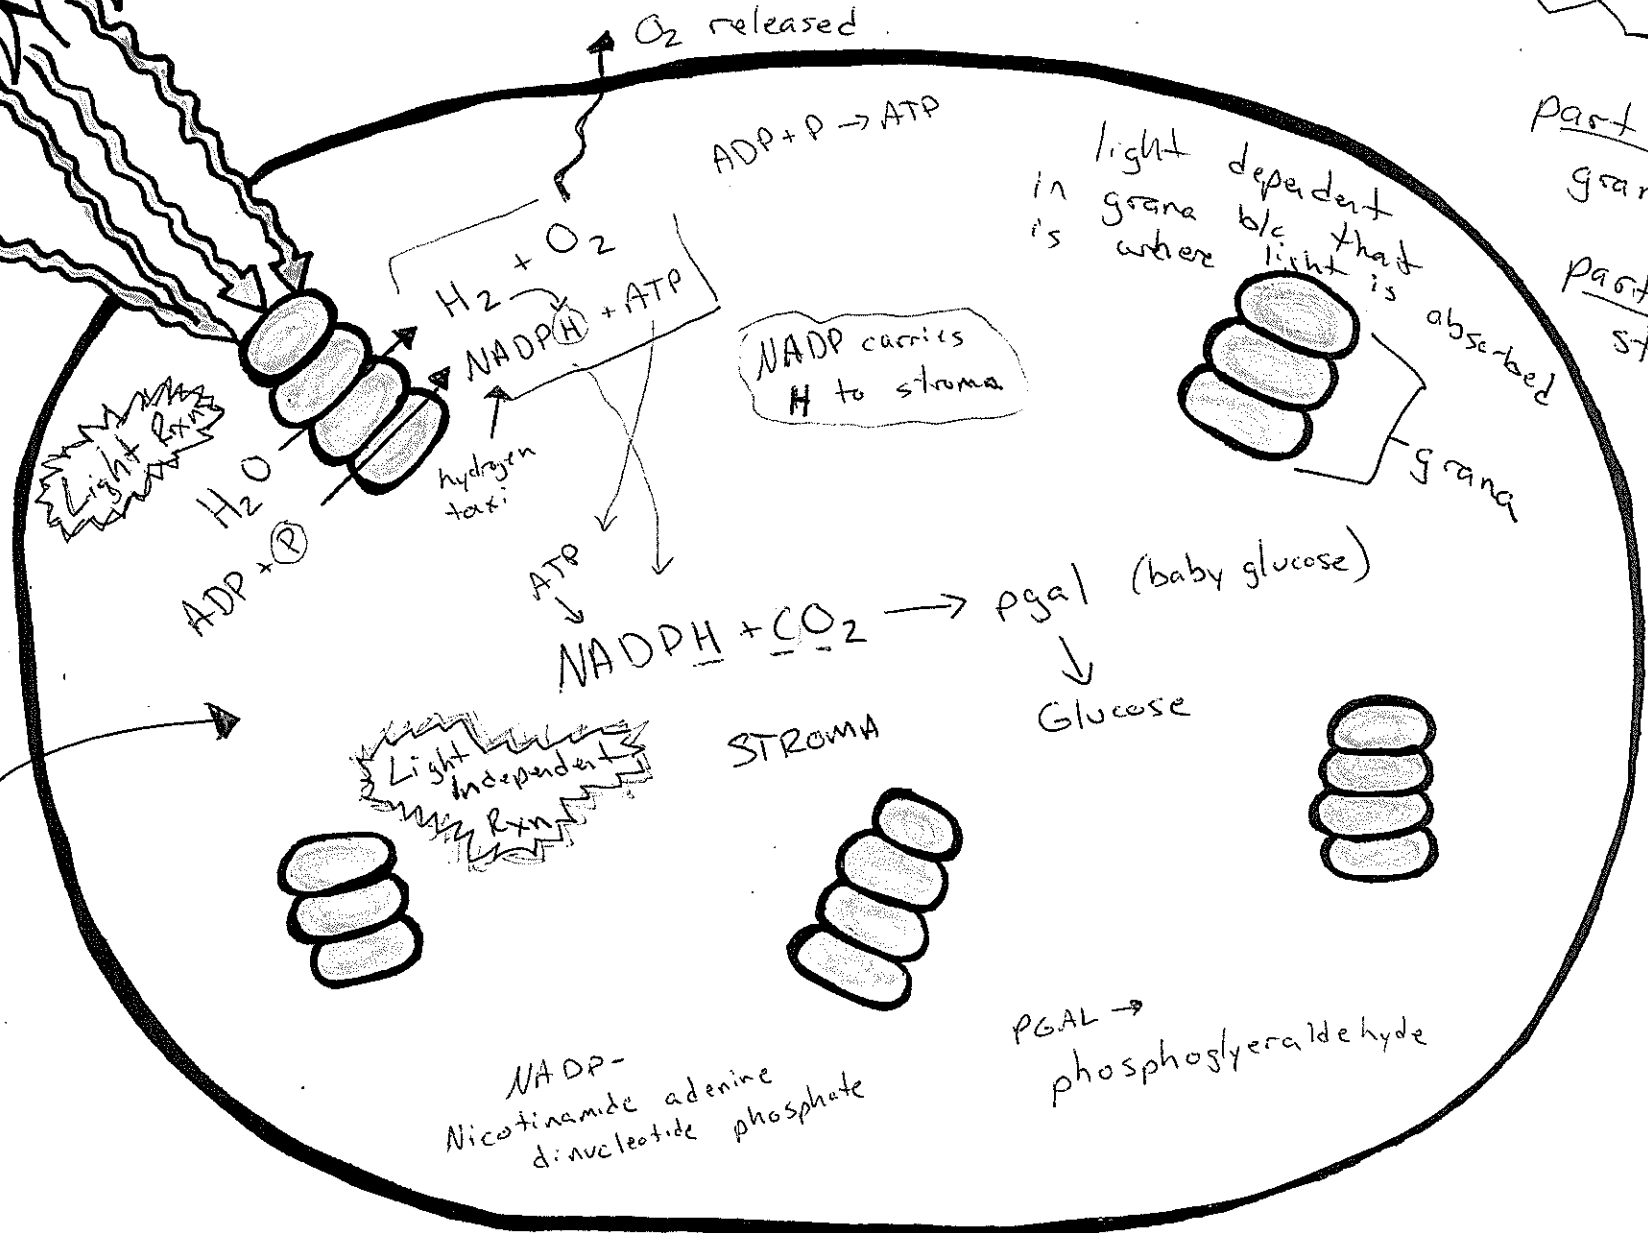 O₂ released
ADP + P → ATP
light dependent
in grana b/c that
is where light is absorbed
part
part
H₂ + O₂
NADPH + ATP
NADP carries
H to stroma
Light Rxn
H₂O
ADP + P
hydrogen
taxi
grana
ATP
NADPH + CO₂ → pgal (baby glucose)
Glucose
Light
Independent
Rxn
STROMA
PGAL →
phosphoglyeraldehyde
NADP-
Nicotinamide adenine
dinucleotide phosphate